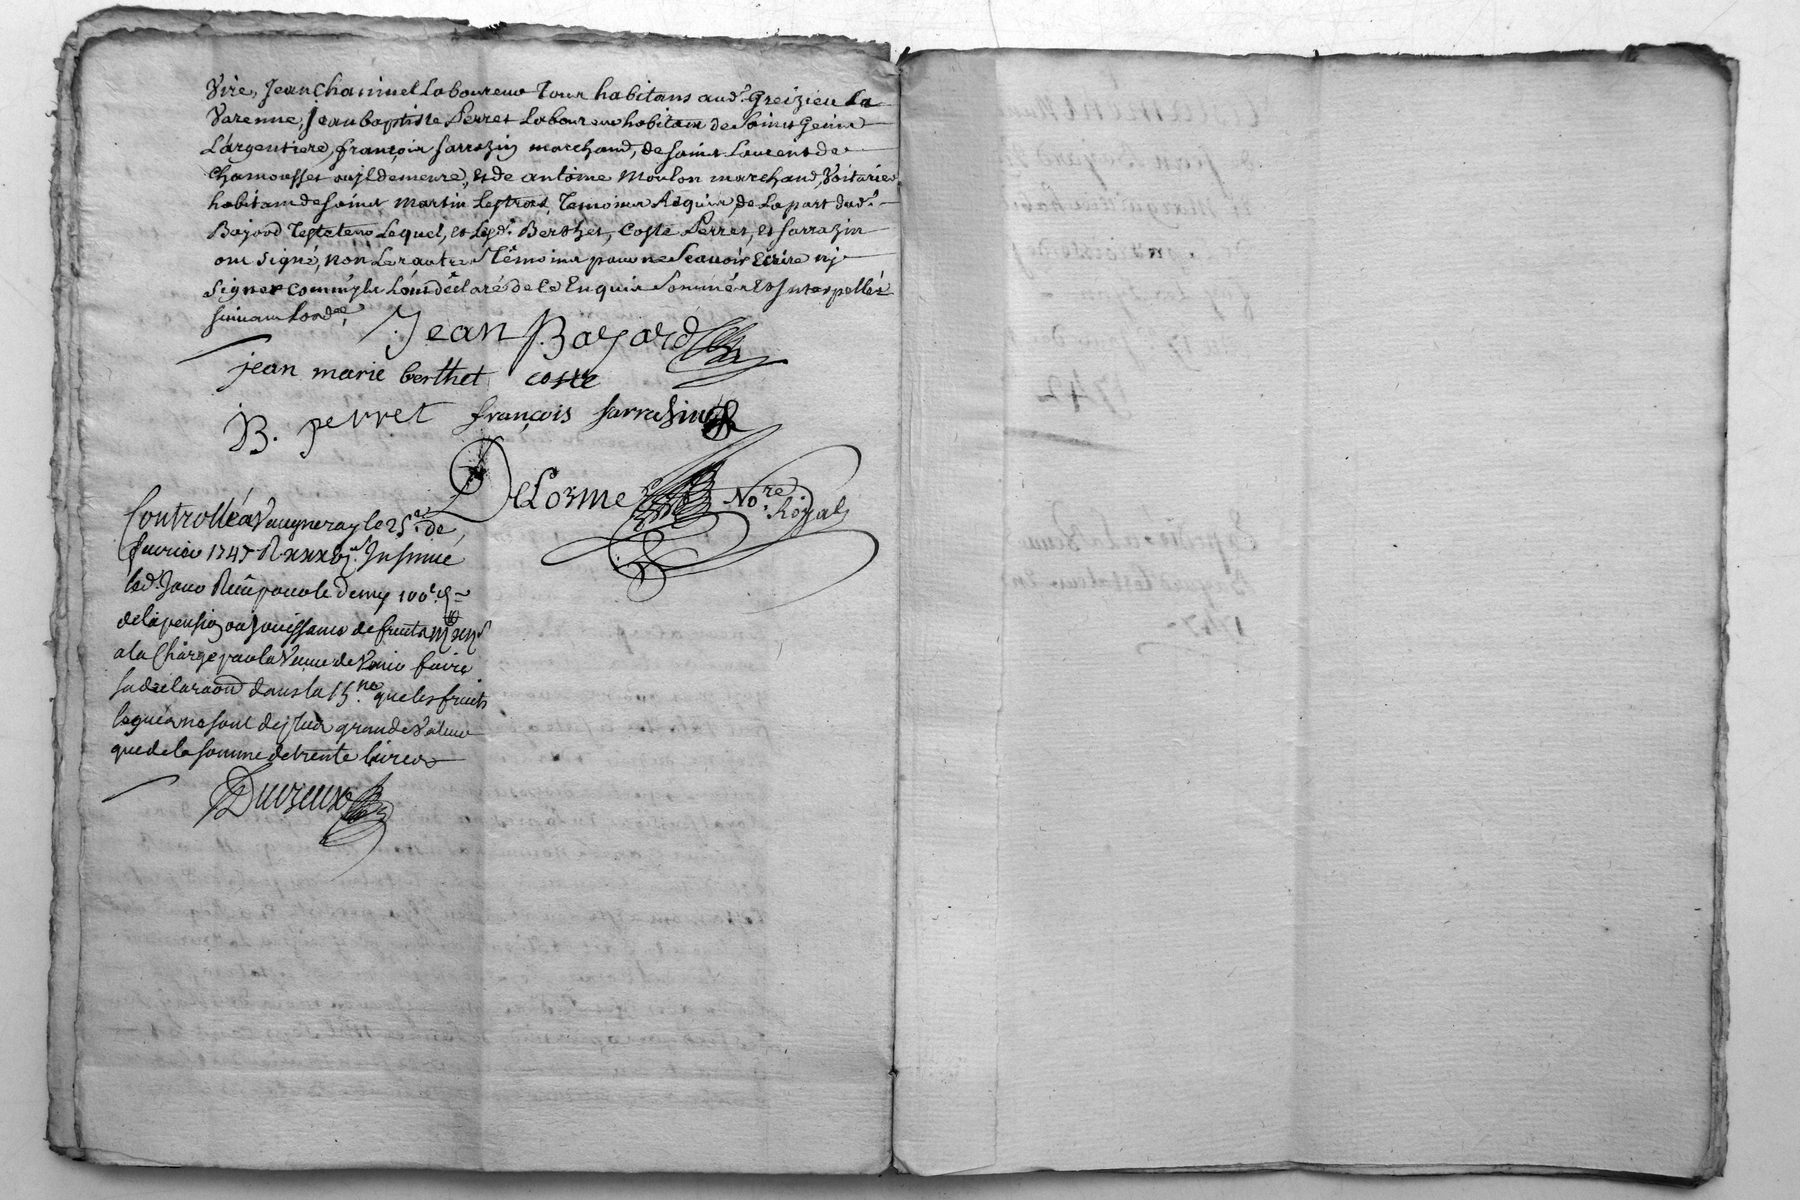 Vire, Jean Chaninel Laboureur Tous habitans aud.t Greizieu La
Varenne, Jean baptiste Perret Laboureur habitant de Saint Genis
L'argentiere, françois sarrazin marchand, de saint Laurent de
Chamousset ouyl demeure, et de antoine Moulon marchand, Voiturier
habitant de saint Martin Lestrat, Temoins Requis, de La part dud.t
Bayard Testateur Lequel, et Lesd.ts Berthet, Coste Perret, et sarrazin
ont signé, non Les autres Témoins pour ne Scauoir Ecrire ny
Signer comm'jls L'ont déclaré de ce Enquis Sommés et Interpellés
suivant Lord.ce
Jean Bayard
jean marie berthet coste
JB. perret françois sarrasin
DeLorme No.re Royal
Controllé a Vaugneray le 25.e de
fevrier 1747 R xxx Insinué
led. Jour Reçu pour le demy 100.e
de la pension ou jouissance de fruits
a la Charge par la Veuve de Venir faire
sa declaraon dans la 15.ne que les fruits
legués ne sont de plus grande Valeur
que de la somme de trente livres
Duvreux